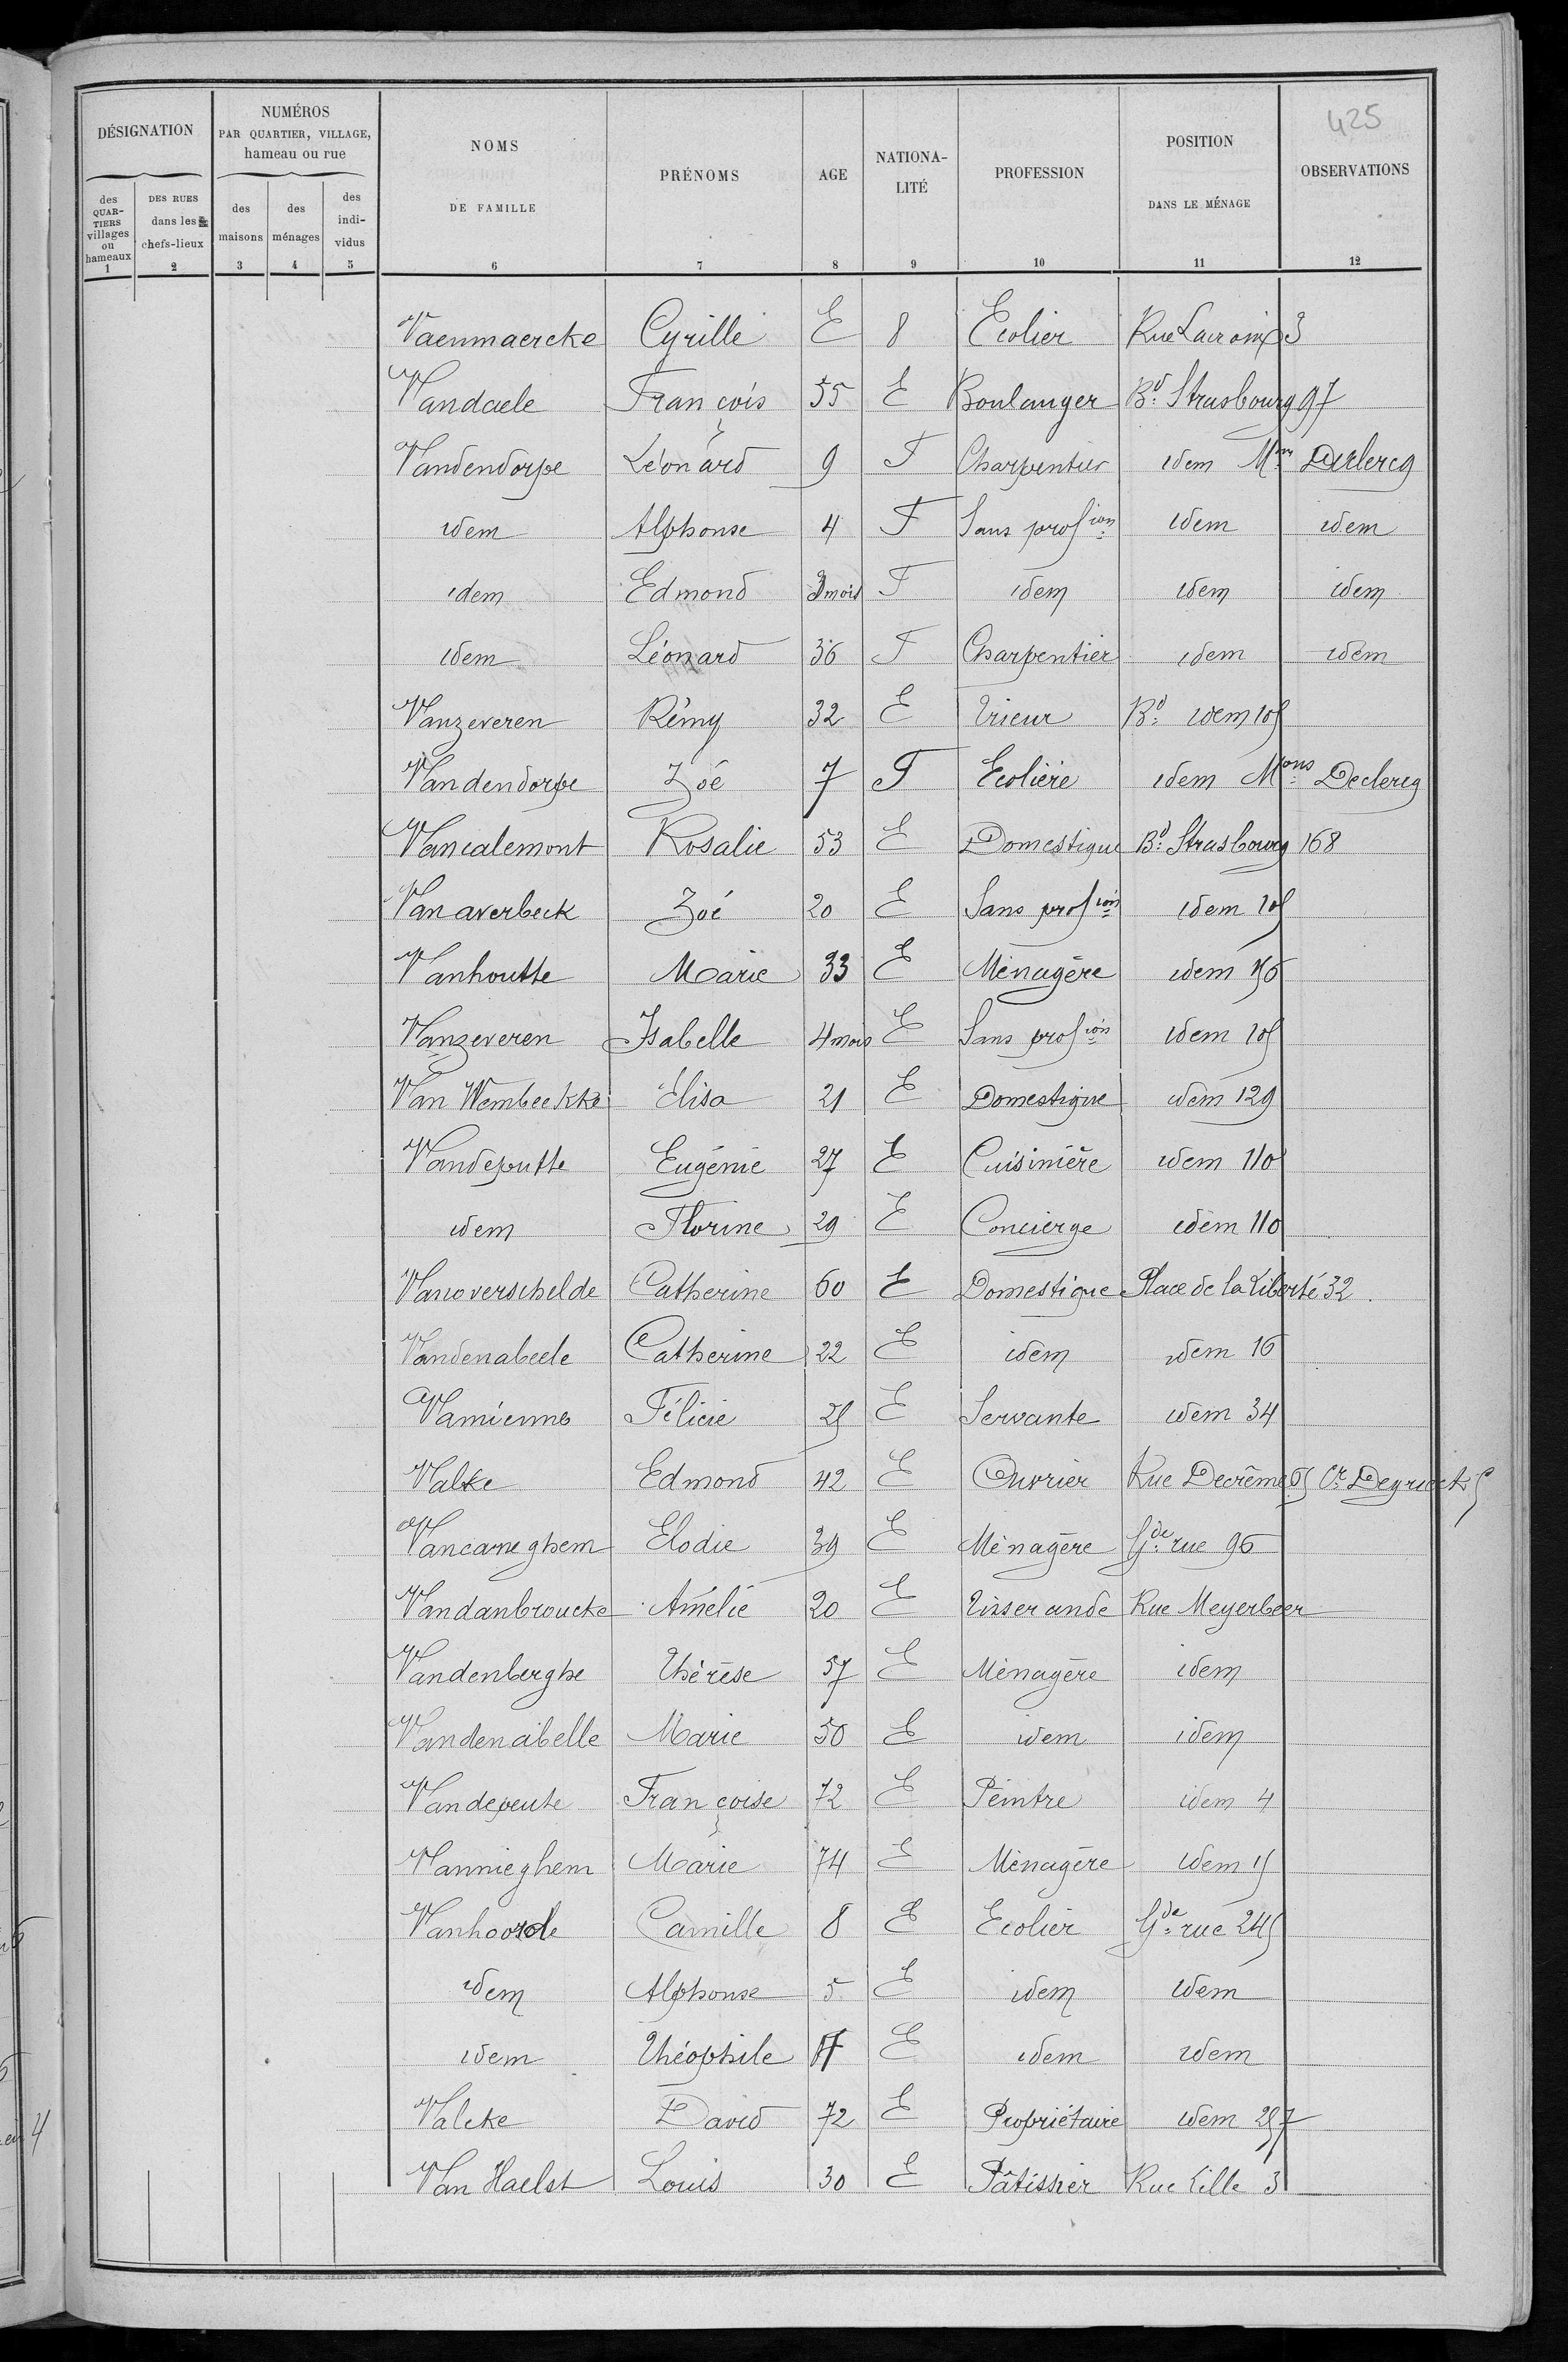 425
DÉSIGNATION NUMÉROS PAR QUARTIER, VILLAGE, hameau ou rue NOMS DE FAMILLE PRÉNOMS AGE NATIONALITÉ PROFESSION POSITION DANS LE MÉNAGE OBSERVATIONS
des QUARTIERS villages ou hameaux DES RUES dans les chefs-lieux des maisons des ménages des individus
1 2 3 4 5 6 7 8 9 10 11 12
Vaenmaercke Cyrille E 8 Ecolier Rue Lacroix 3
Vandaele François 55 E Boulanger Bd Strasbourg 97
Vandendorpe Léonard 9 F Charpentier idem Mon Declercq
idem Alphonse 4 F Sans profion idem idem
idem Edmond 3 mois F idem idem idem
idem Léonard 36 F Charpentier idem idem
Vanzeveren Rémy 32 E Trieur Bd idem 105
Vandendorpe Zoé 7 F Ecolière idem Mons Declercq
Vancalemont Rosalie 53 E Domestique Bd Strasbourg 168
Van averbeck Zoé 20 E Sans profion idem 105
Vanhoutte Marie 33 E Ménagère idem 156
Vanzeveren Isabelle 4 mois E Sans profion idem 105
Van Wembeekke Élisa 21 E Domestique idem 129
Vandeputte Eugénie 27 E Cuisinière idem 110
idem Florine 29 E Concierge idem 110
Vanoverschelde Catherine 60 E Domestique Place de la Liberté 32
Vandenabeele Catherine 22 E idem idem 16
Vamienne Félicie 25 E Servante idem 34
Valke Edmond 42 E Ouvrier Rue Decrême 65 Cr Deyrieck 5
Vancaneghem Elodie 39 E Ménagère Gde rue 96
Vandanbroucke Amélie 20 E Tisserande Rue Meyerbeer
Vandenberghe Thérèse 57 E Ménagère idem
Vandenabelle Marie 50 E idem idem
Vandepeute Françoise 72 E Peintre idem 4
Vannieghem Marie 74 E Ménagère idem 15
Vanhoorde Camille 8 E Ecolier Gde rue 245
idem Alphonse 5 E idem idem
idem Théophile E idem idem
Valcke David 72 E Propriétaire idem 257
Van Haelst Louis 30 E Pâtissier Rue Lille 3